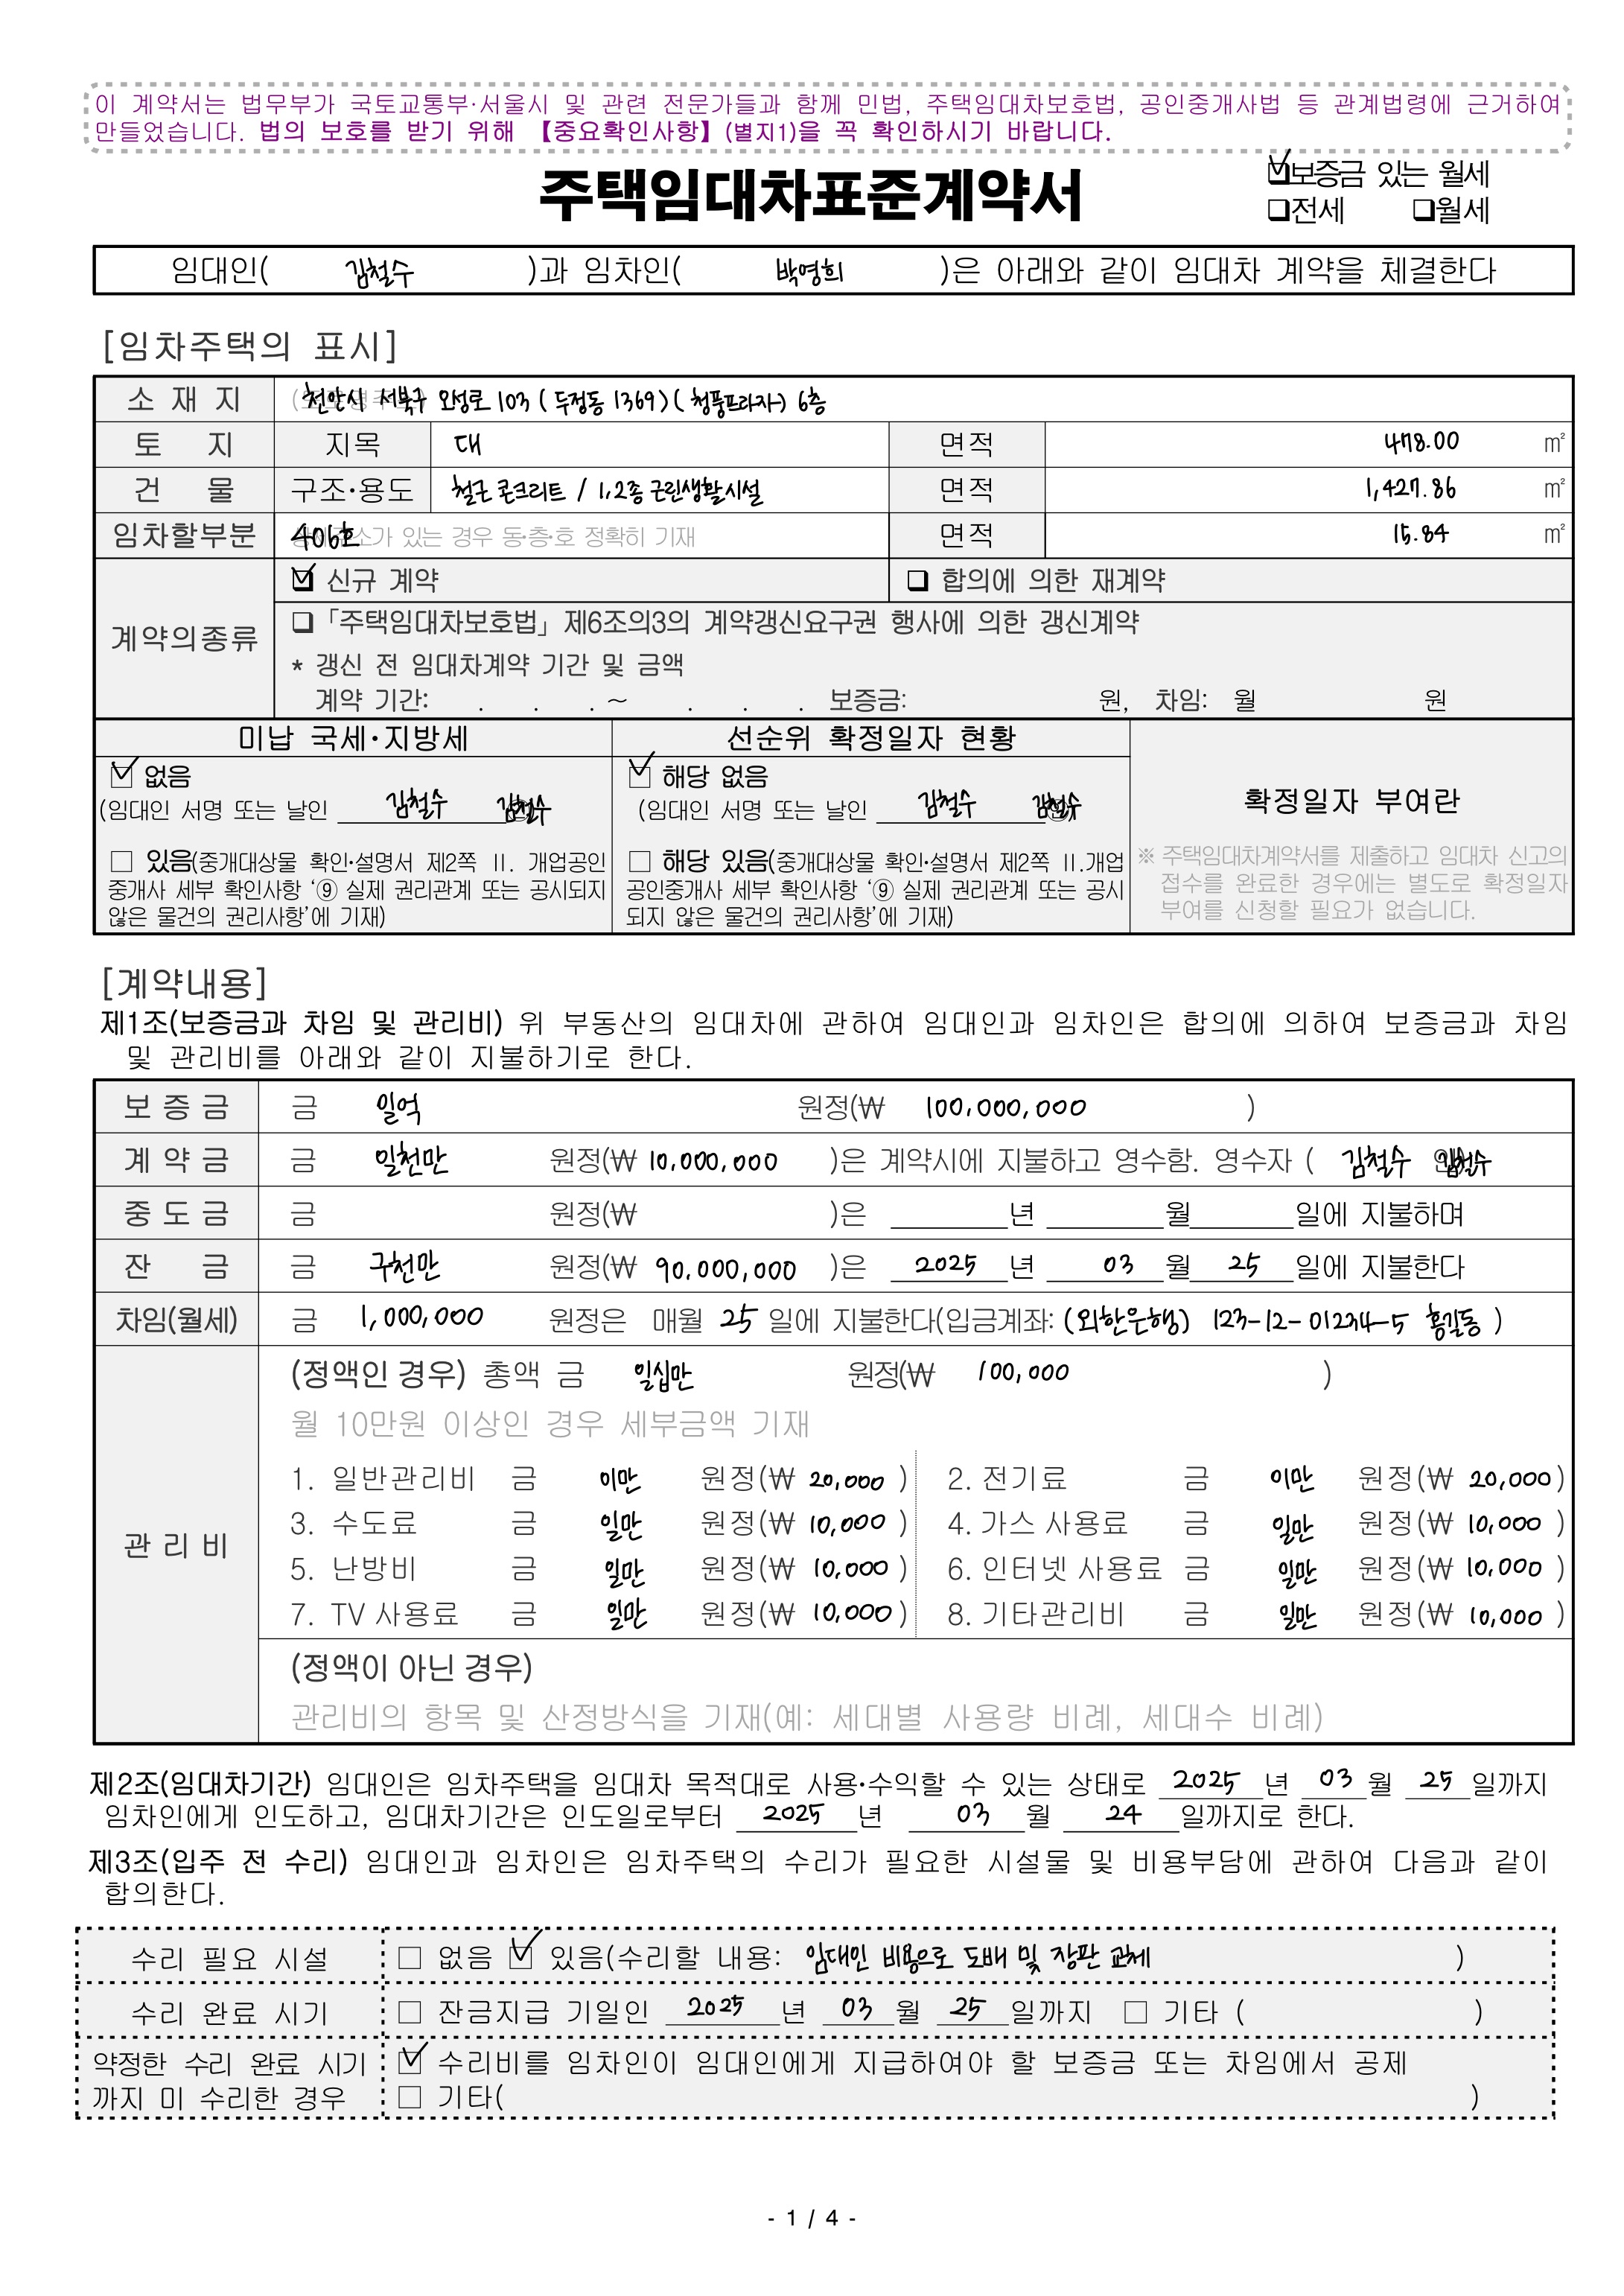 이 계약서는 법무부가 국토교통부·서울시 및 관련 전문가들과 함께 민법, 주택임대차보호법, 공인중개사법 등 관계법령에 근거하여
만들었습니다. 법의 보호를 받기 위해 【중요확인사항】(별지1)을 꼭 확인하시기 바랍니다.
☑보증금 있는 월세
주택임대차표준계약서
❏전세 ❏월세
임대인( 김철수 )과 임차인( 박영희 )은 아래와 같이 임대차 계약을 체결한다
[임차주택의 표시]
소 재 지 천안시 서북구 오성로 103 ( 두정동 1369) ( 청풍프라자) 6층
토 지 지목 대 면적 478.00 ㎡
건 물 구조·용도 철근 콘크리트 / 1,2종 근린생활시설 면적 1,427.86 ㎡
임차할부분 406호 소가 있는 경우 동·층·호 정확히 기재 면적 15.84 ㎡
계약의종류 ☑ 신규 계약 ❏ 합의에 의한 재계약
❏「주택임대차보호법」제6조의3의 계약갱신요구권 행사에 의한 갱신계약
* 갱신 전 임대차계약 기간 및 금액
계약 기간: . . . ~ . . . 보증금: 원, 차임: 월 원
미납 국세·지방세 선순위 확정일자 현황
☑ 없음 ☑ 해당 없음
(임대인 서명 또는 날인 김철수 김철수 (임대인 서명 또는 날인 김철수 김철수
확정일자 부여란
□ 있음(중개대상물 확인·설명서 제2쪽 Ⅱ. 개업공인
중개사 세부 확인사항 ‘⑨ 실제 권리관계 또는 공시되지
않은 물건의 권리사항’에 기재)
□ 해당 있음(중개대상물 확인·설명서 제2쪽 Ⅱ.개업
공인중개사 세부 확인사항 ‘⑨ 실제 권리관계 또는 공시
되지 않은 물건의 권리사항’에 기재)
※ 주택임대차계약서를 제출하고 임대차 신고의
접수를 완료한 경우에는 별도로 확정일자
부여를 신청할 필요가 없습니다.
[계약내용]
제1조(보증금과 차임 및 관리비) 위 부동산의 임대차에 관하여 임대인과 임차인은 합의에 의하여 보증금과 차임
및 관리비를 아래와 같이 지불하기로 한다.
보 증 금 금 일억 원정(₩ 100,000,000 )
계 약 금 금 일천만 원정(₩ 10,000,000 )은 계약시에 지불하고 영수함. 영수자 ( 김철수 김철수
중 도 금 금 원정(₩ )은 년 월 일에 지불하며
잔 금 금 구천만 원정(₩ 90,000,000 )은 2025 년 03 월 25 일에 지불한다
차임(월세) 금 1,000,000 원정은 매월 25 일에 지불한다(입금계좌: (외한은행) 123-12-01234-5 홍길동 )
관 리 비 (정액인 경우) 총액 금 일십만 원정(₩ 100,000 )
월 10만원 이상인 경우 세부금액 기재
1. 일반관리비 금 이만 원정(₩ 20,000 ) 2. 전기료 금 이만 원정(₩ 20,000 )
3. 수도료 금 일만 원정(₩ 10,000 ) 4. 가스 사용료 금 일만 원정(₩ 10,000 )
5. 난방비 금 일만 원정(₩ 10,000 ) 6. 인터넷 사용료 금 일만 원정(₩ 10,000 )
7. TV 사용료 금 일만 원정(₩ 10,000 ) 8. 기타관리비 금 일만 원정(₩ 10,000 )
(정액이 아닌 경우)
관리비의 항목 및 산정방식을 기재(예: 세대별 사용량 비례, 세대수 비례)
제2조(임대차기간) 임대인은 임차주택을 임대차 목적대로 사용·수익할 수 있는 상태로 2025 년 03 월 25 일까지
임차인에게 인도하고, 임대차기간은 인도일로부터 2025 년 03 월 24 일까지로 한다.
제3조(입주 전 수리) 임대인과 임차인은 임차주택의 수리가 필요한 시설물 및 비용부담에 관하여 다음과 같이
합의한다.
수리 필요 시설 □ 없음 ☑ 있음(수리할 내용: 임대인 비용으로 도배 및 장판 교체 )
수리 완료 시기 □ 잔금지급 기일인 2025 년 03 월 25 일까지 □ 기타 ( )
약정한 수리 완료 시기 ☑ 수리비를 임차인이 임대인에게 지급하여야 할 보증금 또는 차임에서 공제
까지 미 수리한 경우 □ 기타( )
- 1 / 4 -